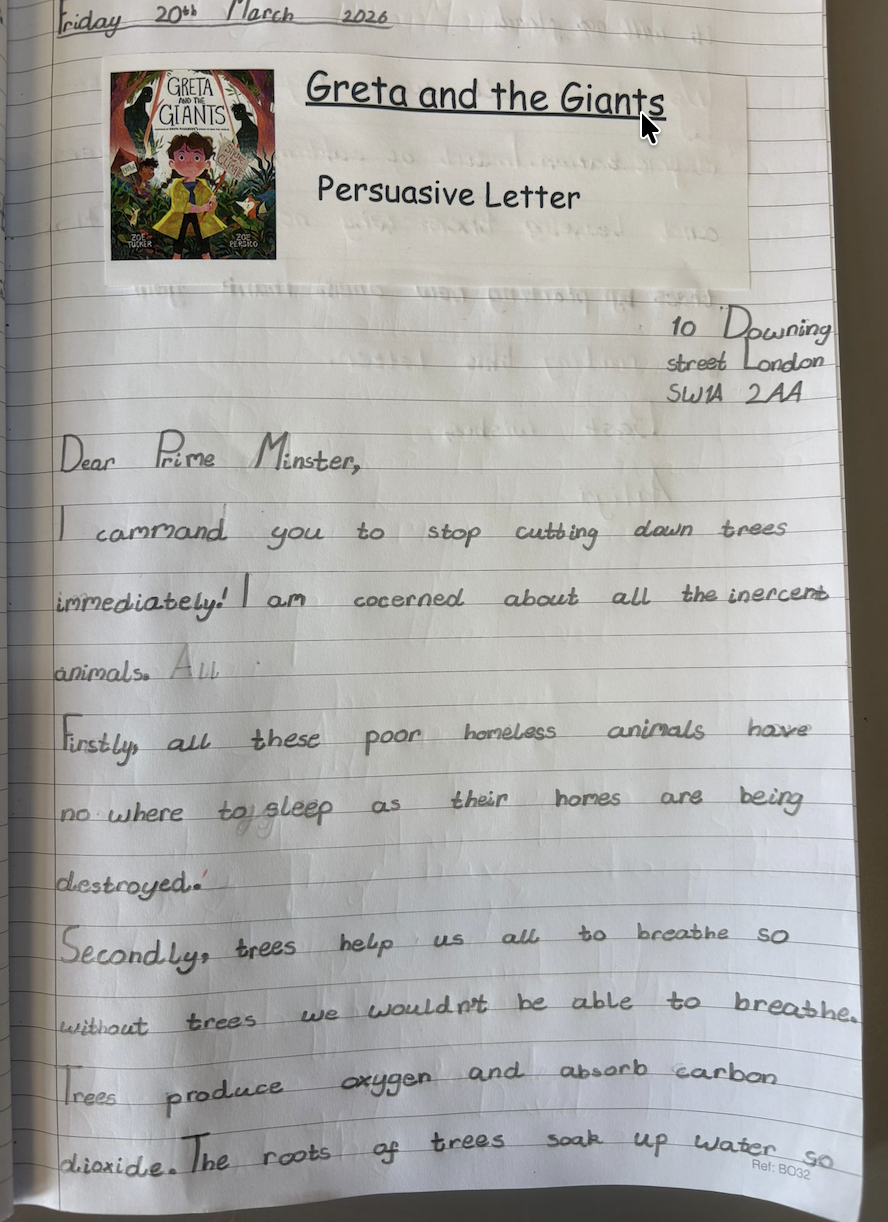 Friday 20th March 2026
GRETA
AND THE
GIANTS
Greta and the Giants
Persuasive Letter
ZOË
TUCKER
ZOE
PERSICO
10 Downing
street London
SW1A 2AA
Dear Prime Minster,
I cammand you to stop cutting down trees
immediately! I am cocerned about all the inercent
animals. All
Firstly, all these poor homeless animals have
no where to sleep as their homes are being
destroyed.
Secondly, trees help us all to breathe so
without trees we wouldn't be able to breathe.
Trees produce oxygen and absorb carbon
dioxide. The roots of trees soak up water so
Ref: BO32